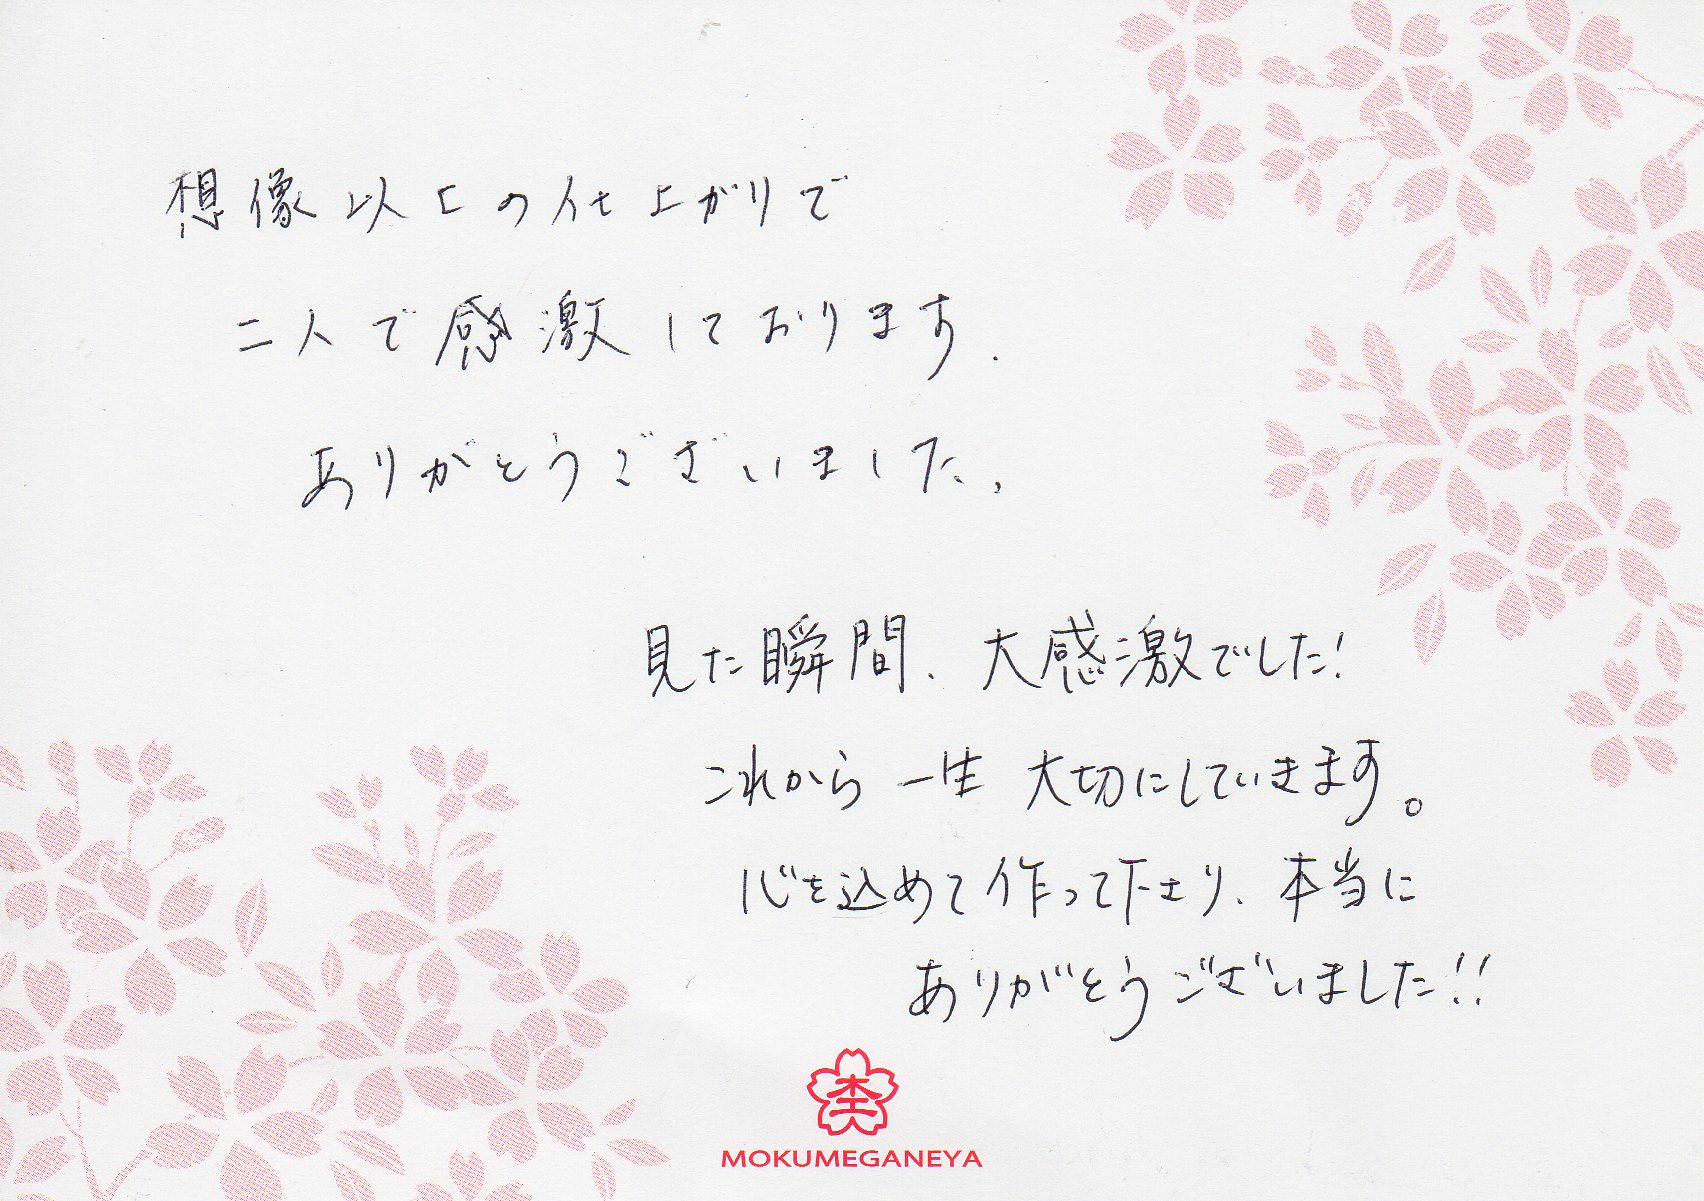 想像以上の仕上がりで
二人で感激しております.
ありがとうございました.
見た瞬間、大感激でした!
これから一生大切にしていきます。
心を込めて作って下さり、本当に
ありがとうございました!!
MOKUMEGANEYA